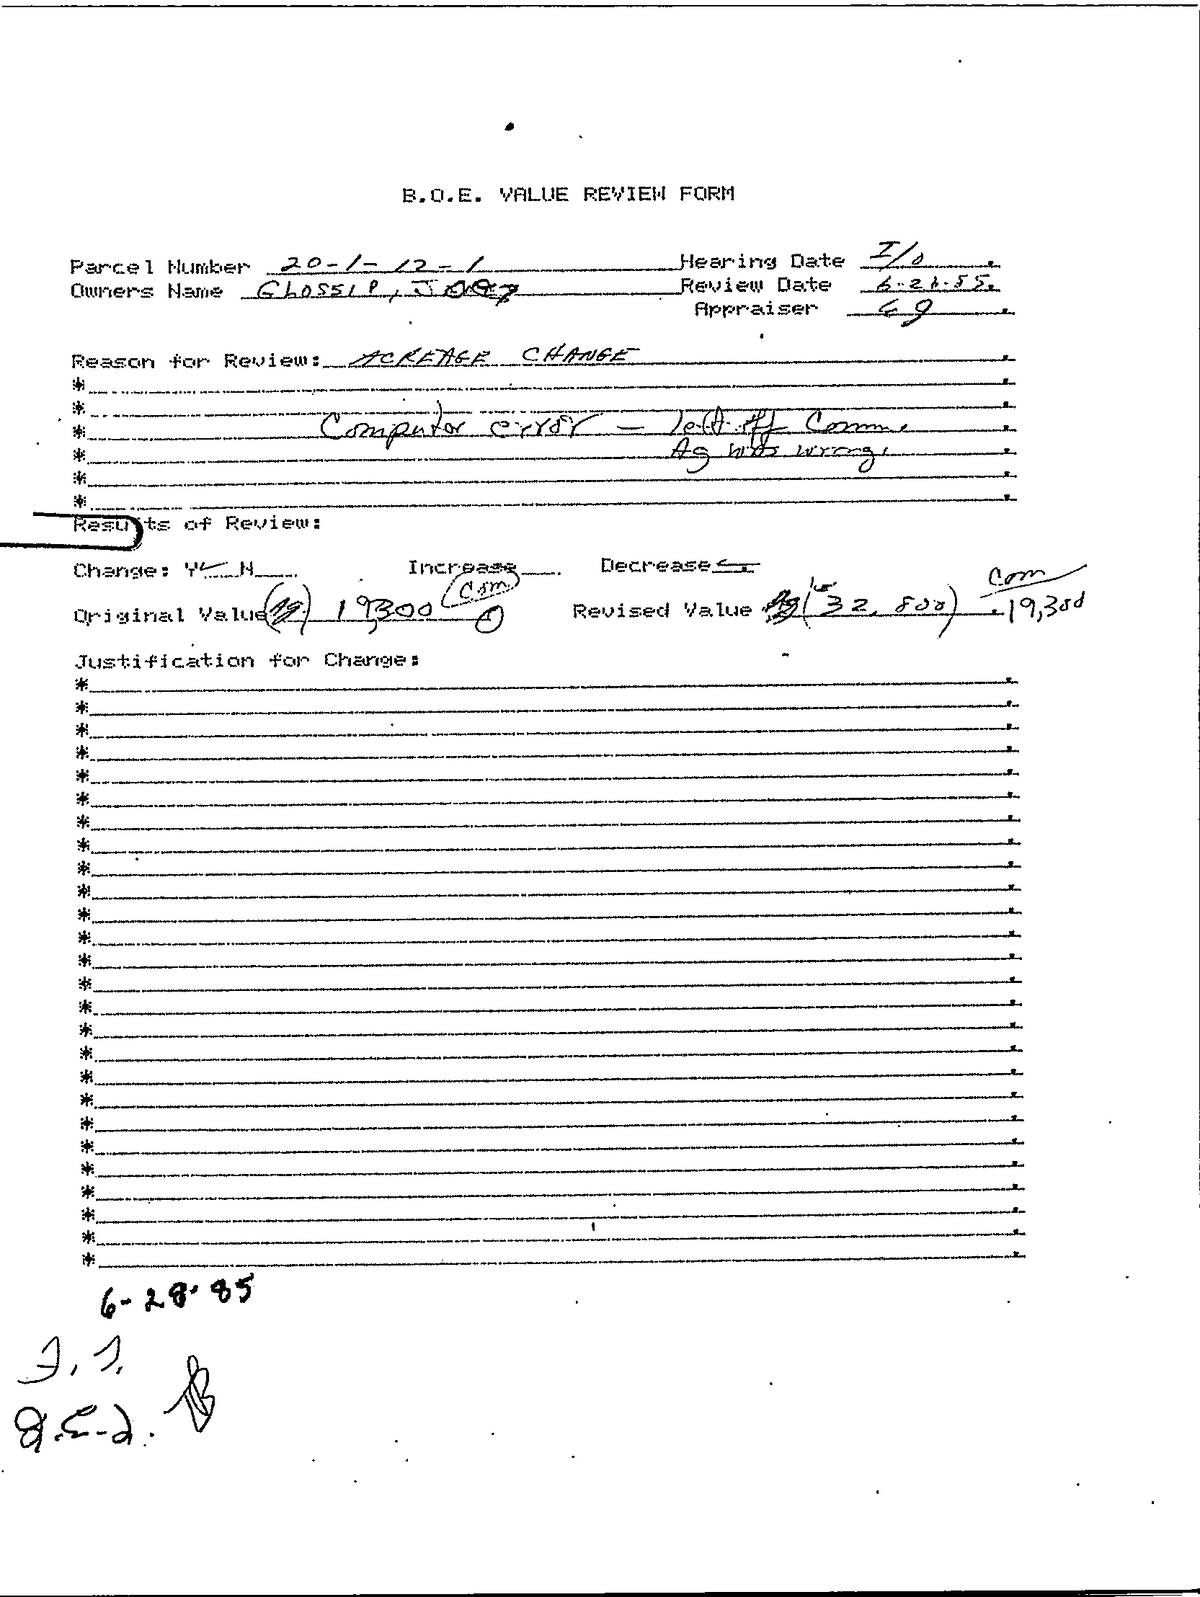 B.O.E. VALUE REVIEW FORM
Parcel Number 20-1-12-1 Hearing Date I/O
Owners Name GLOSSIP, Review Date
Appraiser
Reason for Review: ACREAGE CHANGE
*
*
* Computer error — left off Comm.
* Ag was wrong.
*
*
Results of Review:
Change: Y N Increase Decrease
Original Value 19,300 (Com) 0 Revised Value (32,800) Com 19,300
Justification for Change:
*
*
*
*
*
*
*
*
*
*
*
*
*
*
*
*
*
*
*
*
*
*
*
*
*
*
6-28-85